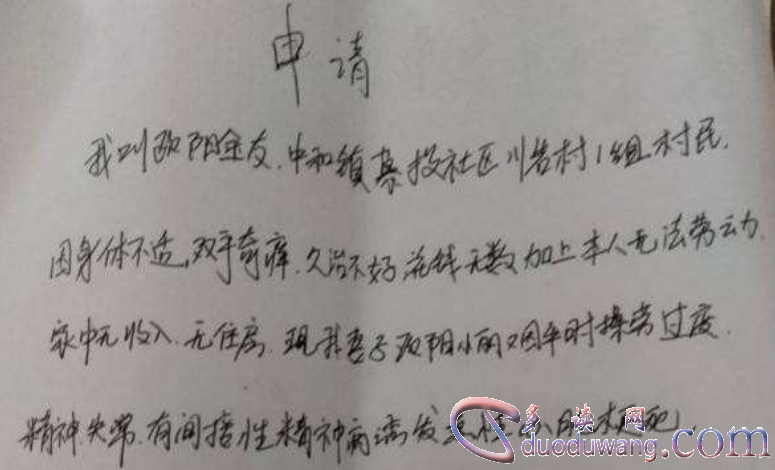 申请
我叫欧阳金友.中和镇 社区川岩村1组村民.
因身体不适,双手奇痒.久治不好花钱无数加上本人无法劳动.
家中无收入.无住房.现我妻子欧阳小丽又因平时操劳过度.
精神失常.有间 性精神病 发
多读网
duoduwang.com